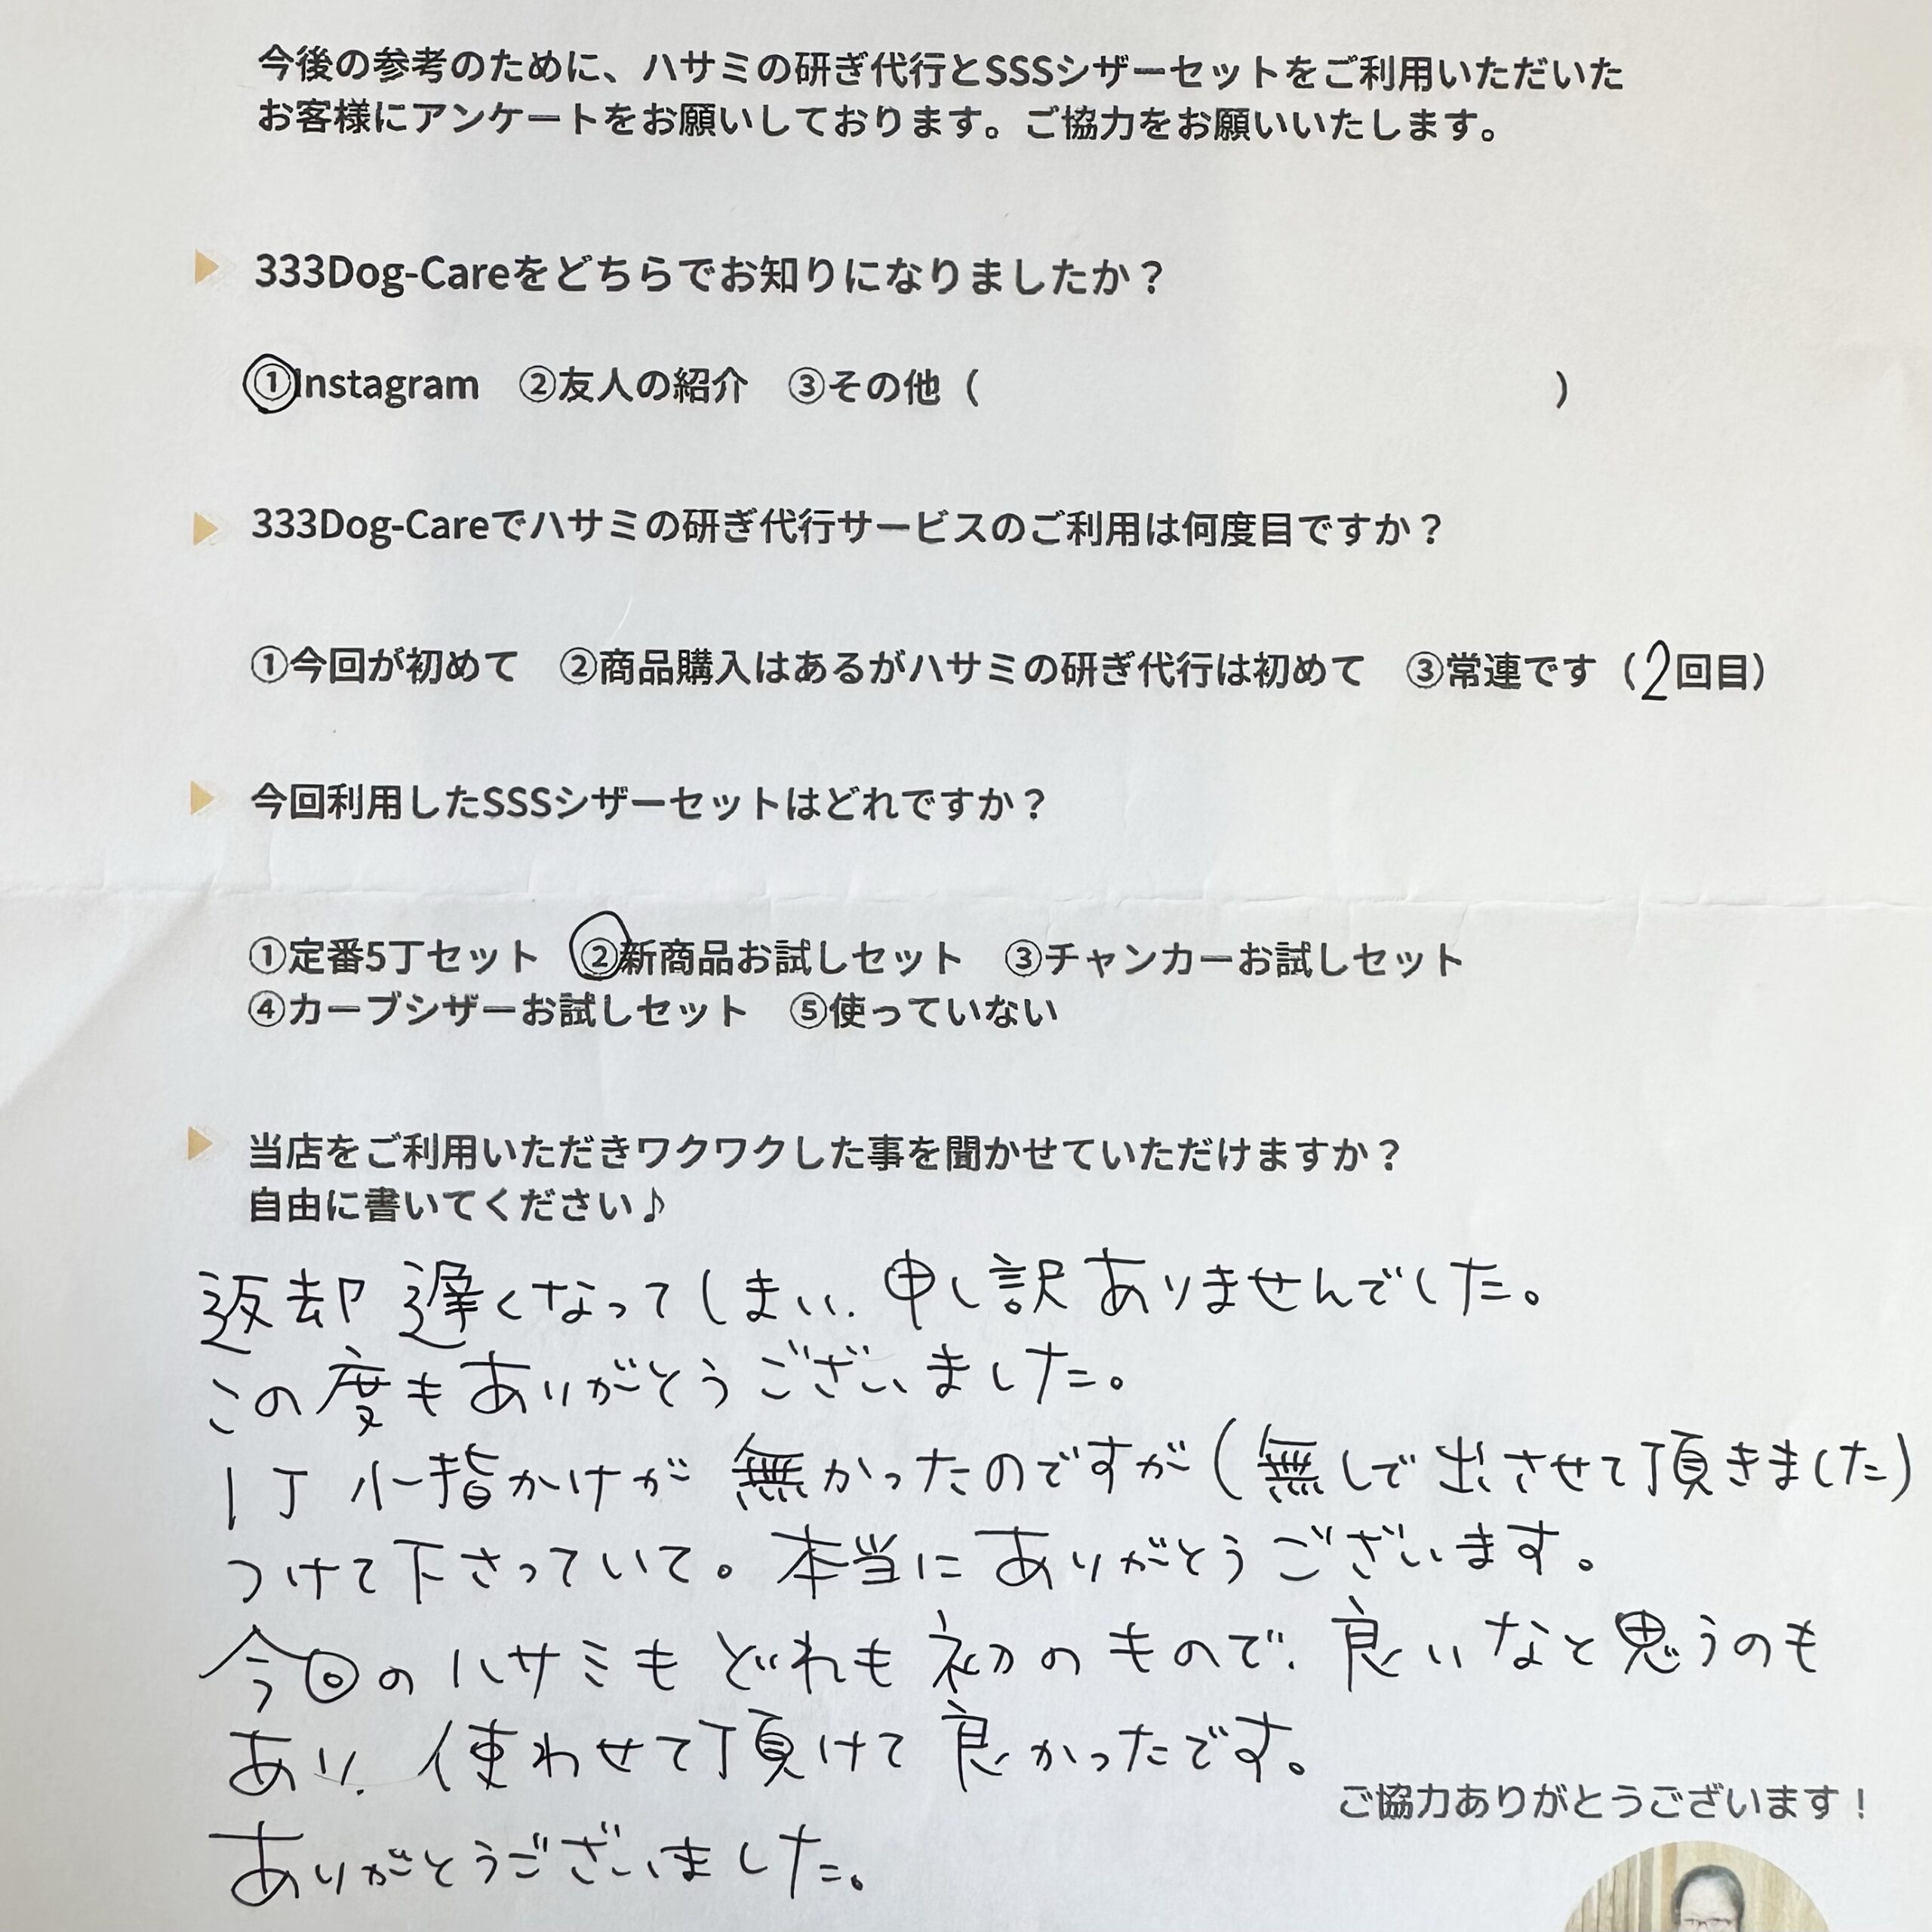 今後の参考のために、ハサミの研ぎ代行とSSSシザーセットをご利用いただいた
お客様にアンケートをお願いしております。ご協力をお願いいたします。
333Dog-Careをどちらでお知りになりましたか？
①Instagram ②友人の紹介 ③その他（ ）
333Dog-Careでハサミの研ぎ代行サービスのご利用は何度目ですか？
①今回が初めて ②商品購入はあるがハサミの研ぎ代行は初めて ③常連です（2回目）
今回利用したSSSシザーセットはどれですか？
①定番5丁セット ②新商品お試しセット ③チャンカーお試しセット
④カーブシザーお試しセット ⑤使っていない
当店をご利用いただきワクワクした事を聞かせていただけますか？
自由に書いてください♪
返却 遅くなってしまい、申し訳ありませんでした。
この度もありがとうございました。
1丁 小指かけが 無かったのですが(無しで出させて頂きました)
つけて下さっていて。本当にありがとうございます。
今回のハサミもどれも初のもので、良いなと思うのも
あり、使わせて頂けて良かったです。
ご協力ありがとうございます！
ありがとうございました。